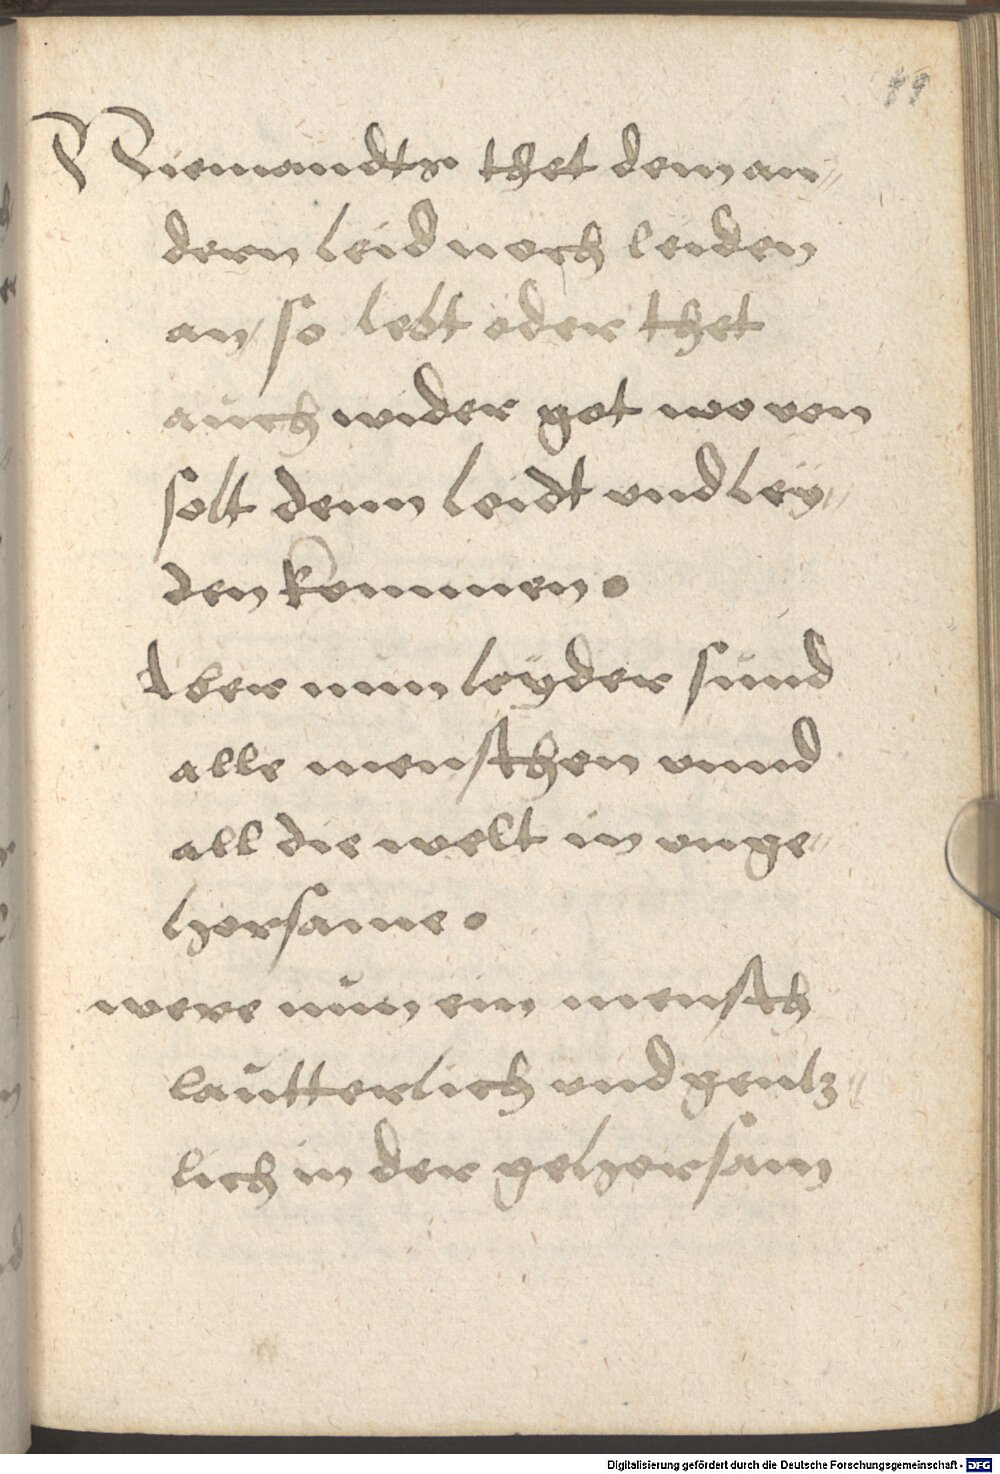 99
Niemandts thet dem an⸗
dern leid noch leiden
an / so lebt oder thet
auch wider got wo von
solt denn leidt vnd ley⸗
den kommen.
Aber nun leyder sind
alle menschen vnnd
all die welt in vnge⸗
horsame.
were nun ein mensch
lautterlich vnd gentz⸗
lich in der gehorsam
Digitalisierung gefördert durch die Deutsche Forschungsgemeinschaft - DFG